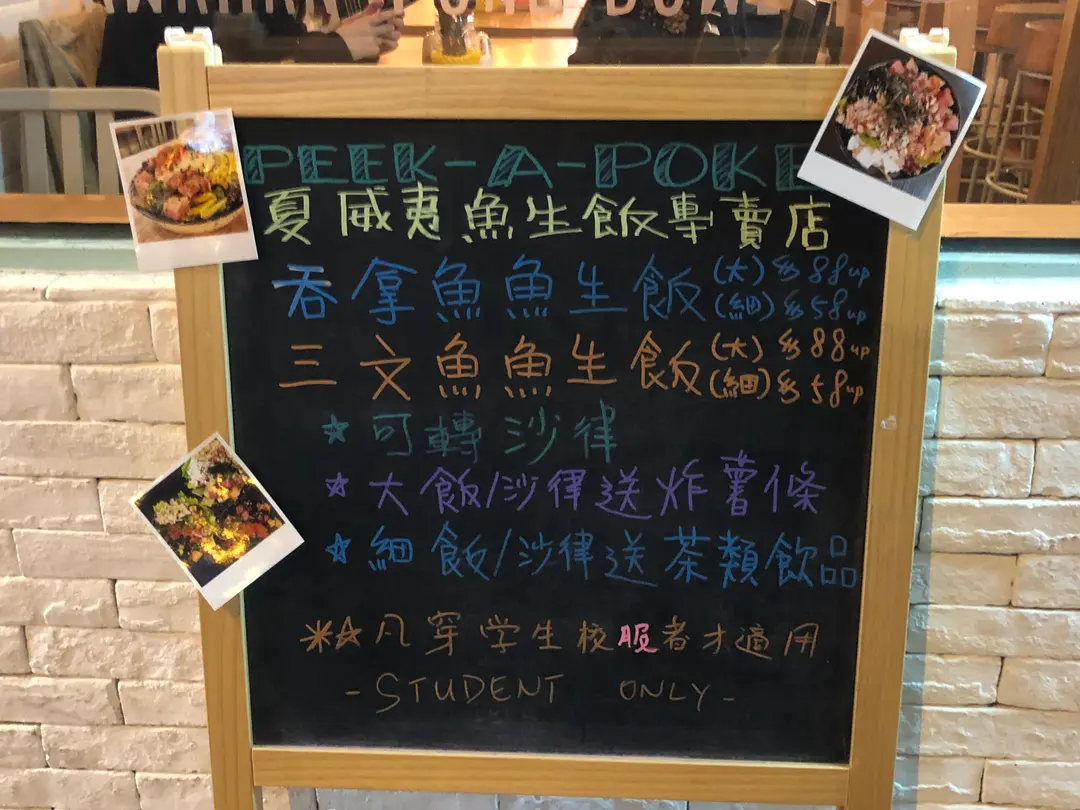 HAWAIIAN POKE BOWL
PEEK-A-POKE
夏威夷魚生飯專賣店
吞拿魚魚生飯 (大) $88up
(細) $58up
三文魚魚生飯 (大) $88up
(細) $58up
☆ 可轉沙律
☆ 大飯/沙律送炸薯條
☆ 細飯/沙律送茶類飲品
※☆凡穿学生校服者才適用
- STUDENT ONLY -